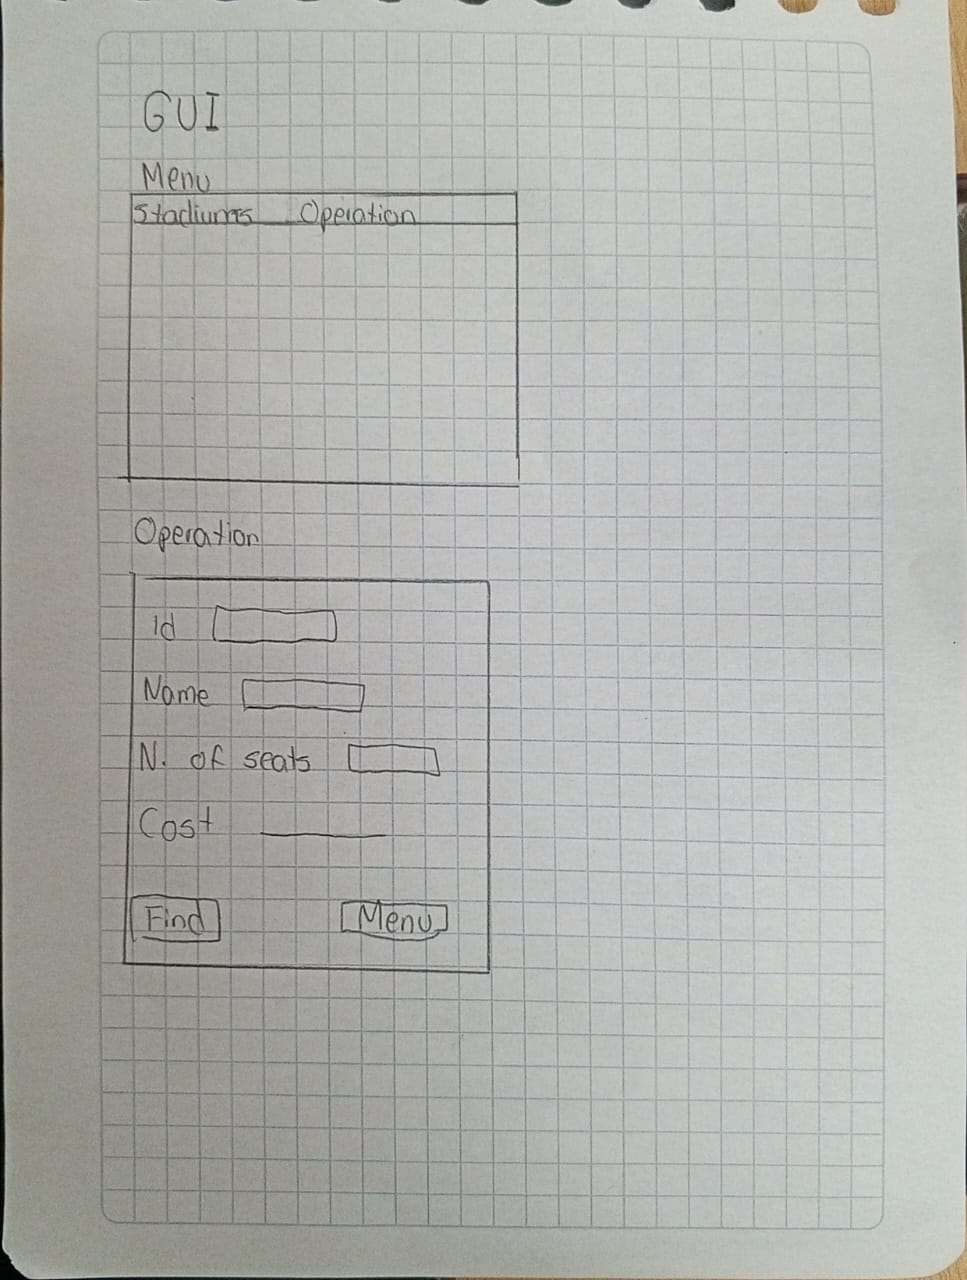 GUI
Menu
Stadiums Operation
Operation
Id
Name
N. of seats
Cost
Find Menu